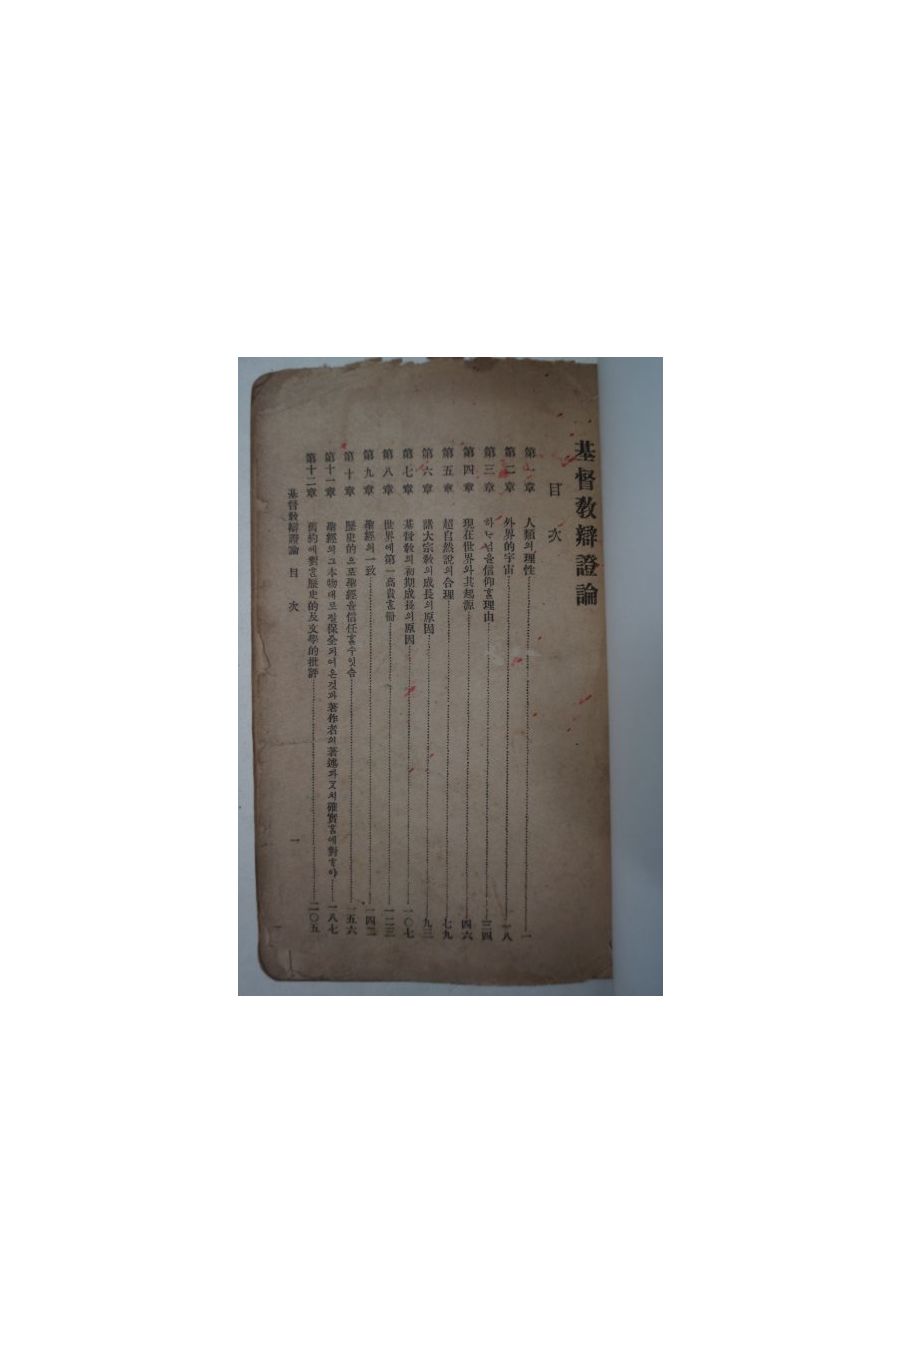 基督敎辯證論
目次
第一章 人類의理性 一
第二章 外界的宇宙 一八
第三章 하나님을信仰할理由 三四
第四章 現在世界와其起源 四六
第五章 超自然說의合理 七九
第六章 諸大宗敎의成長의原因 九三
第七章 基督敎의初期成長의原因 一〇七
第八章 世界에第一高貴한冊 一二三
第九章 聖經의一致 一四二
第十章 歷史的으로聖經을信任할수잇슴 一五六
第十一章 聖經의그本物대로잘保全되여온것과著作者의著述과又서確實함에對하야 一八七
第十二章 舊約에對한歷史的及文學的批評 二〇五
基督敎辯證論 目次 一